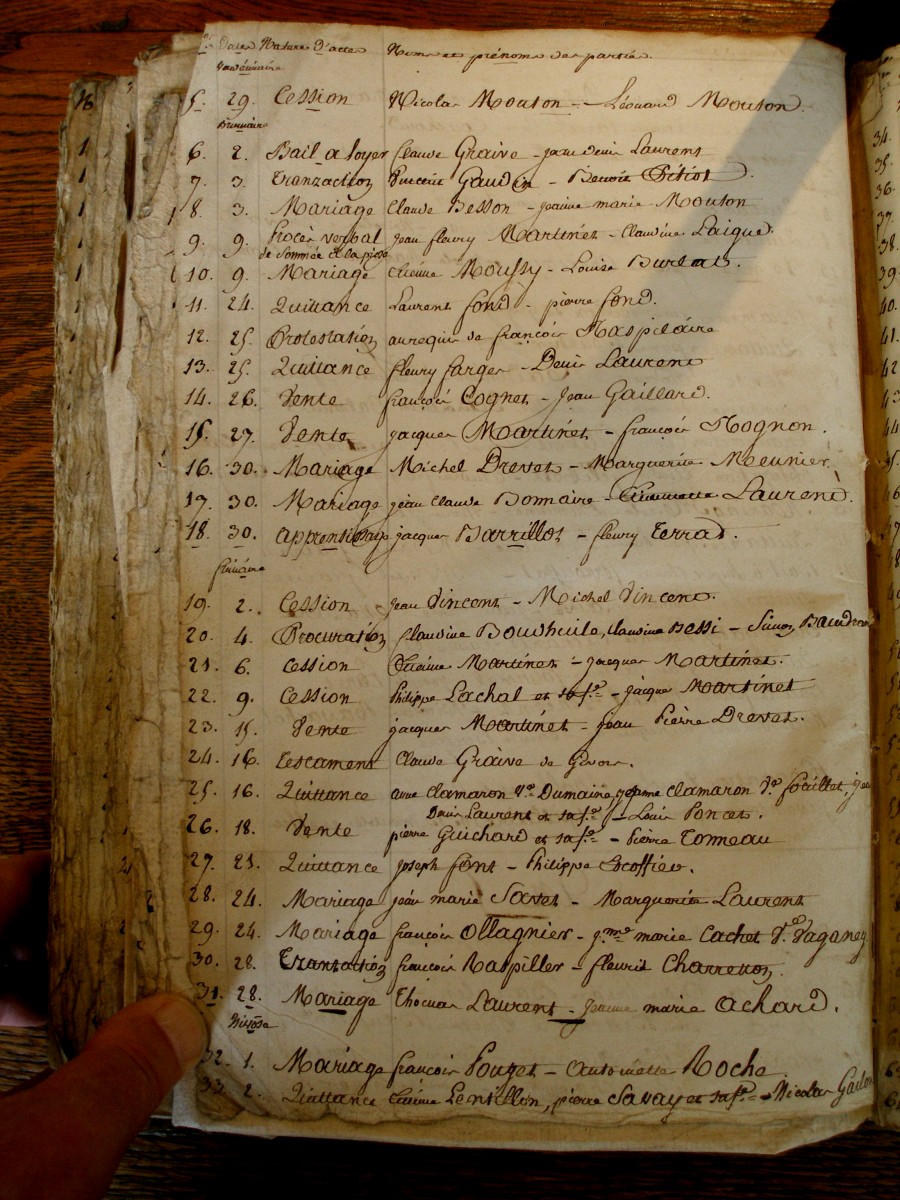 Dates Nature d'actes Noms et prénoms des parties.
Vendémiaire
5. 29. Cession Nicolas Mouton - Léonard Mouton.
Brumaire
6. 2. Bail a loyer Claude Graive - jean denis Laurent
7. 3. Tranzaction Vincent Gaudin - Benoit
8. 3. Mariage Claude Besson - jeanne marie Mouton
9. 9. Procès verbal jean fleury Martinet - Claudine Laigue.
de
10. 9. Mariage Etienne Moussy - Louise Burlat.
11. 24. Quittance Laurent fond - pierre fond.
12. 25. Protestation a requis de françois Raspilaire
13. 25. Quittance fleury farger - Denis Laurent
14. 26. Vente françois Cognet - Jean Gaillard.
15. 27. Vente jacques Martinet - françois Rognon.
16. 30. Mariage Michel Drevet - Marguerite Meunier
17. 30. Mariage jean claude Bonnaire - Laurent.
18. 30. apprentissage jacques Barrillot - fleury Terrat.
frimaire
19. 2. Cession Jean Vincent - Michel Vincent.
20. 4. Procuration Claudine claudine Bessi - Simon
21. 6. Cession Etienne Martinet - jacques Martinet.
22. 9. Cession Philippe Lachal et sa fe. - jacques Martinet
23. 15. Vente jacques Martinet - jean Pierre Drevet.
24. 16. Testament Claude Graive de Givors.
25. 16. Quittance anne Clamaron Ve. Dumaine, clamaron Ve. fouillet, jean
Denis Laurent et sa fe. - Louis Poncet.
26. 18. Vente pierre Guichard et sa fe. - Pierre Tonneau
27. 21. Quittance joseph font - Philippe Escoffier.
28. 24. Mariage jean marie Savet - Marguerite Laurent
29. 24. Mariage françois Ollagnier - j.me marie Cachet
30. 28. Tranzaction françois Raspiller - fleurie Charreton.
31. 28. Mariage Thomas Laurent - jeanne marie Achard.
Nivose
32. 1. Mariage françois Pouzet - antoinette Roche
33. 2. Quittance Etienne Lentillon, pierre Savay et sa fe. - Nicolas
16
34.
35.
36.
37.
38.
39.
40.
41.
42
43
44